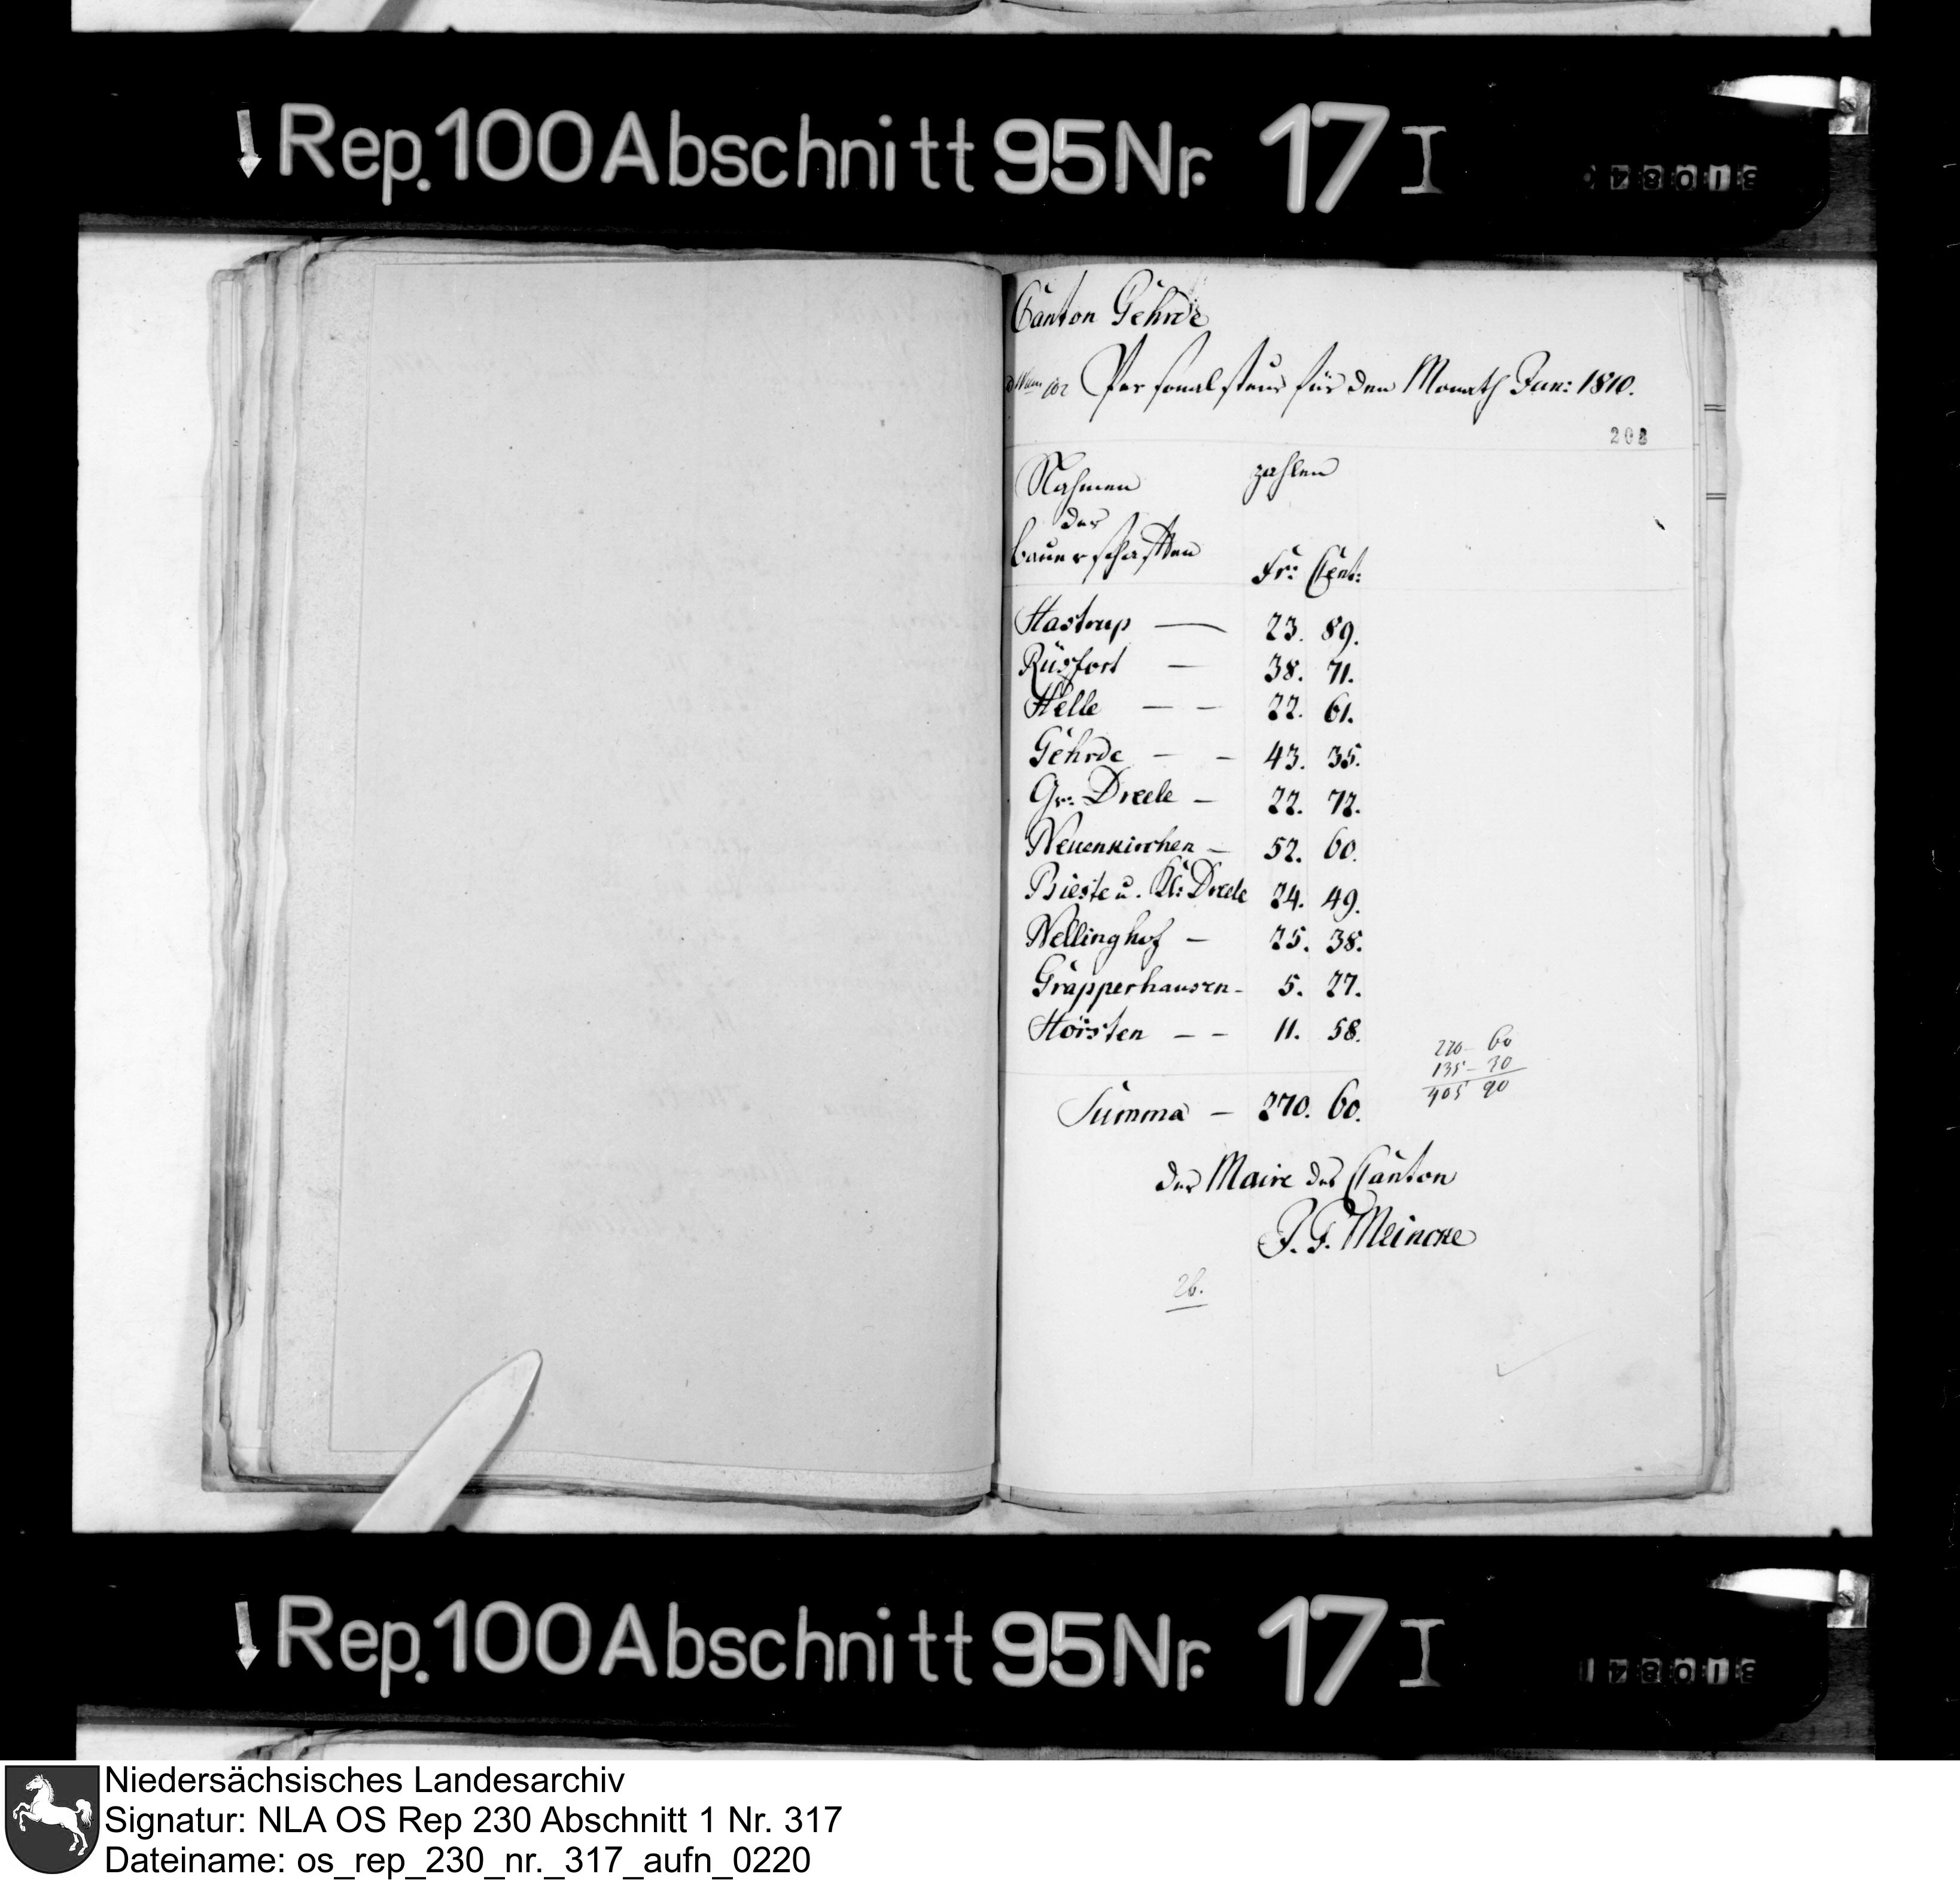 Rep. 100 Abschnitt 95 Nr. 17 I
Canton Gehrde
Personalsteur für den Monath Jun: 1810.
208
Nahmen
der
Bauerschaften
zahlen
Fr: Cent:
Hastrup — 23. 89.
Rüsfort — 38. 71.
Helle — — 22. 61.
Gehrde — — 43. 35.
Gr: Dreele — 22. 72.
Neuenkirchen — 52. 60.
Bieste u. Kl: Dreele 24. 49.
Nellinghof — 25. 38.
Grapperhausen - 5. 27.
Hörsten — — 11. 58.
270 - 60
135 - 30
405 90
Summa — 270. 60.
der Maire des Canton
J. F. Meincke
26.
Rep. 100 Abschnitt 95 Nr. 17 I
Niedersächsisches Landesarchiv
Signatur: NLA OS Rep 230 Abschnitt 1 Nr. 317
Dateiname: os_rep_230_nr._317_aufn_0220